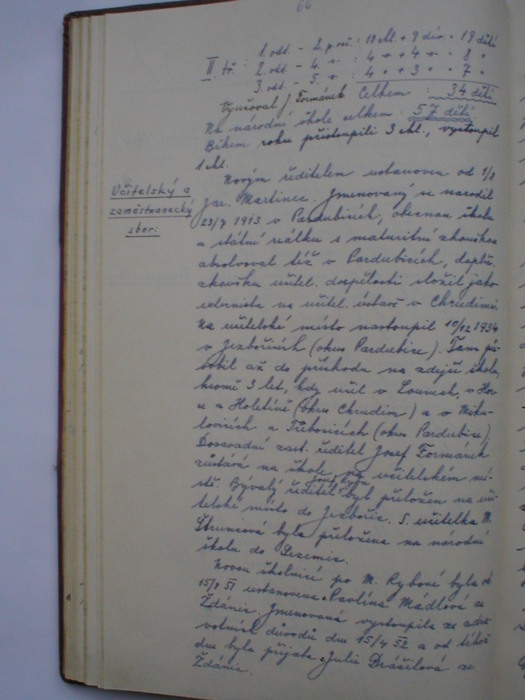 66
1. odd. - 2. p. roč. : 10 chl. + 9 dív. = 19 dětí
II. tř. : 2. odd. - 4. " : 4 " + 4 " = 8 "
3. odd. - 5. " : 4 " + 3 " = 7 "
Vyučoval J. Formánek Celkem : 34 dětí
Na národní škole celkem : 57 dětí
Během roku přistoupili 3 chl., vystoupil
1 chl.
Novým ředitelem ustanoven od 1/8
Učitelský a
Jar. Martinec. Jmenovaný se narodil
zaměstnanecký
23/7 1913 v Pardubicích, obecnou školu
sbor:
a státní reálku s maturitní zkouškou
absolvoval též v Pardubicích, doplň.
zkoušku učitel. dospělosti složil jako
externista na učitel. ústavě v Chrudimi.
Na učitelské místo nastoupil 10/12 1934
v Jezbořicích (okres Pardubice). Tam pů-
sobil až do příchodu na zdejší školu,
kromě 3 let, kdy učil v Lounech, v Hor
u a Holetíně (okres Chrudim) a v Miku-
lovicích a Třebosicích (okres Pardubice).
Dosavadní zast. ředitel Josef Formánek
zůstává na škole na učitelském mí-
stě. Bývalý ředitel byl přeložen na uči-
telské místo do Jezbořic. S. učitelka M.
Štruncová byla přeložena na národní
školu do Dezemic.
Novou školnicí po M. Rybové byla od
15/9 51 ustanovena Pavlína Mádlová ze
Ždánic. Jmenovaná vystoupila ze zdra-
votních důvodů dne 15/4 52 a od téhož
dne byla přijata Julie Drášilová ze
Ždánic.